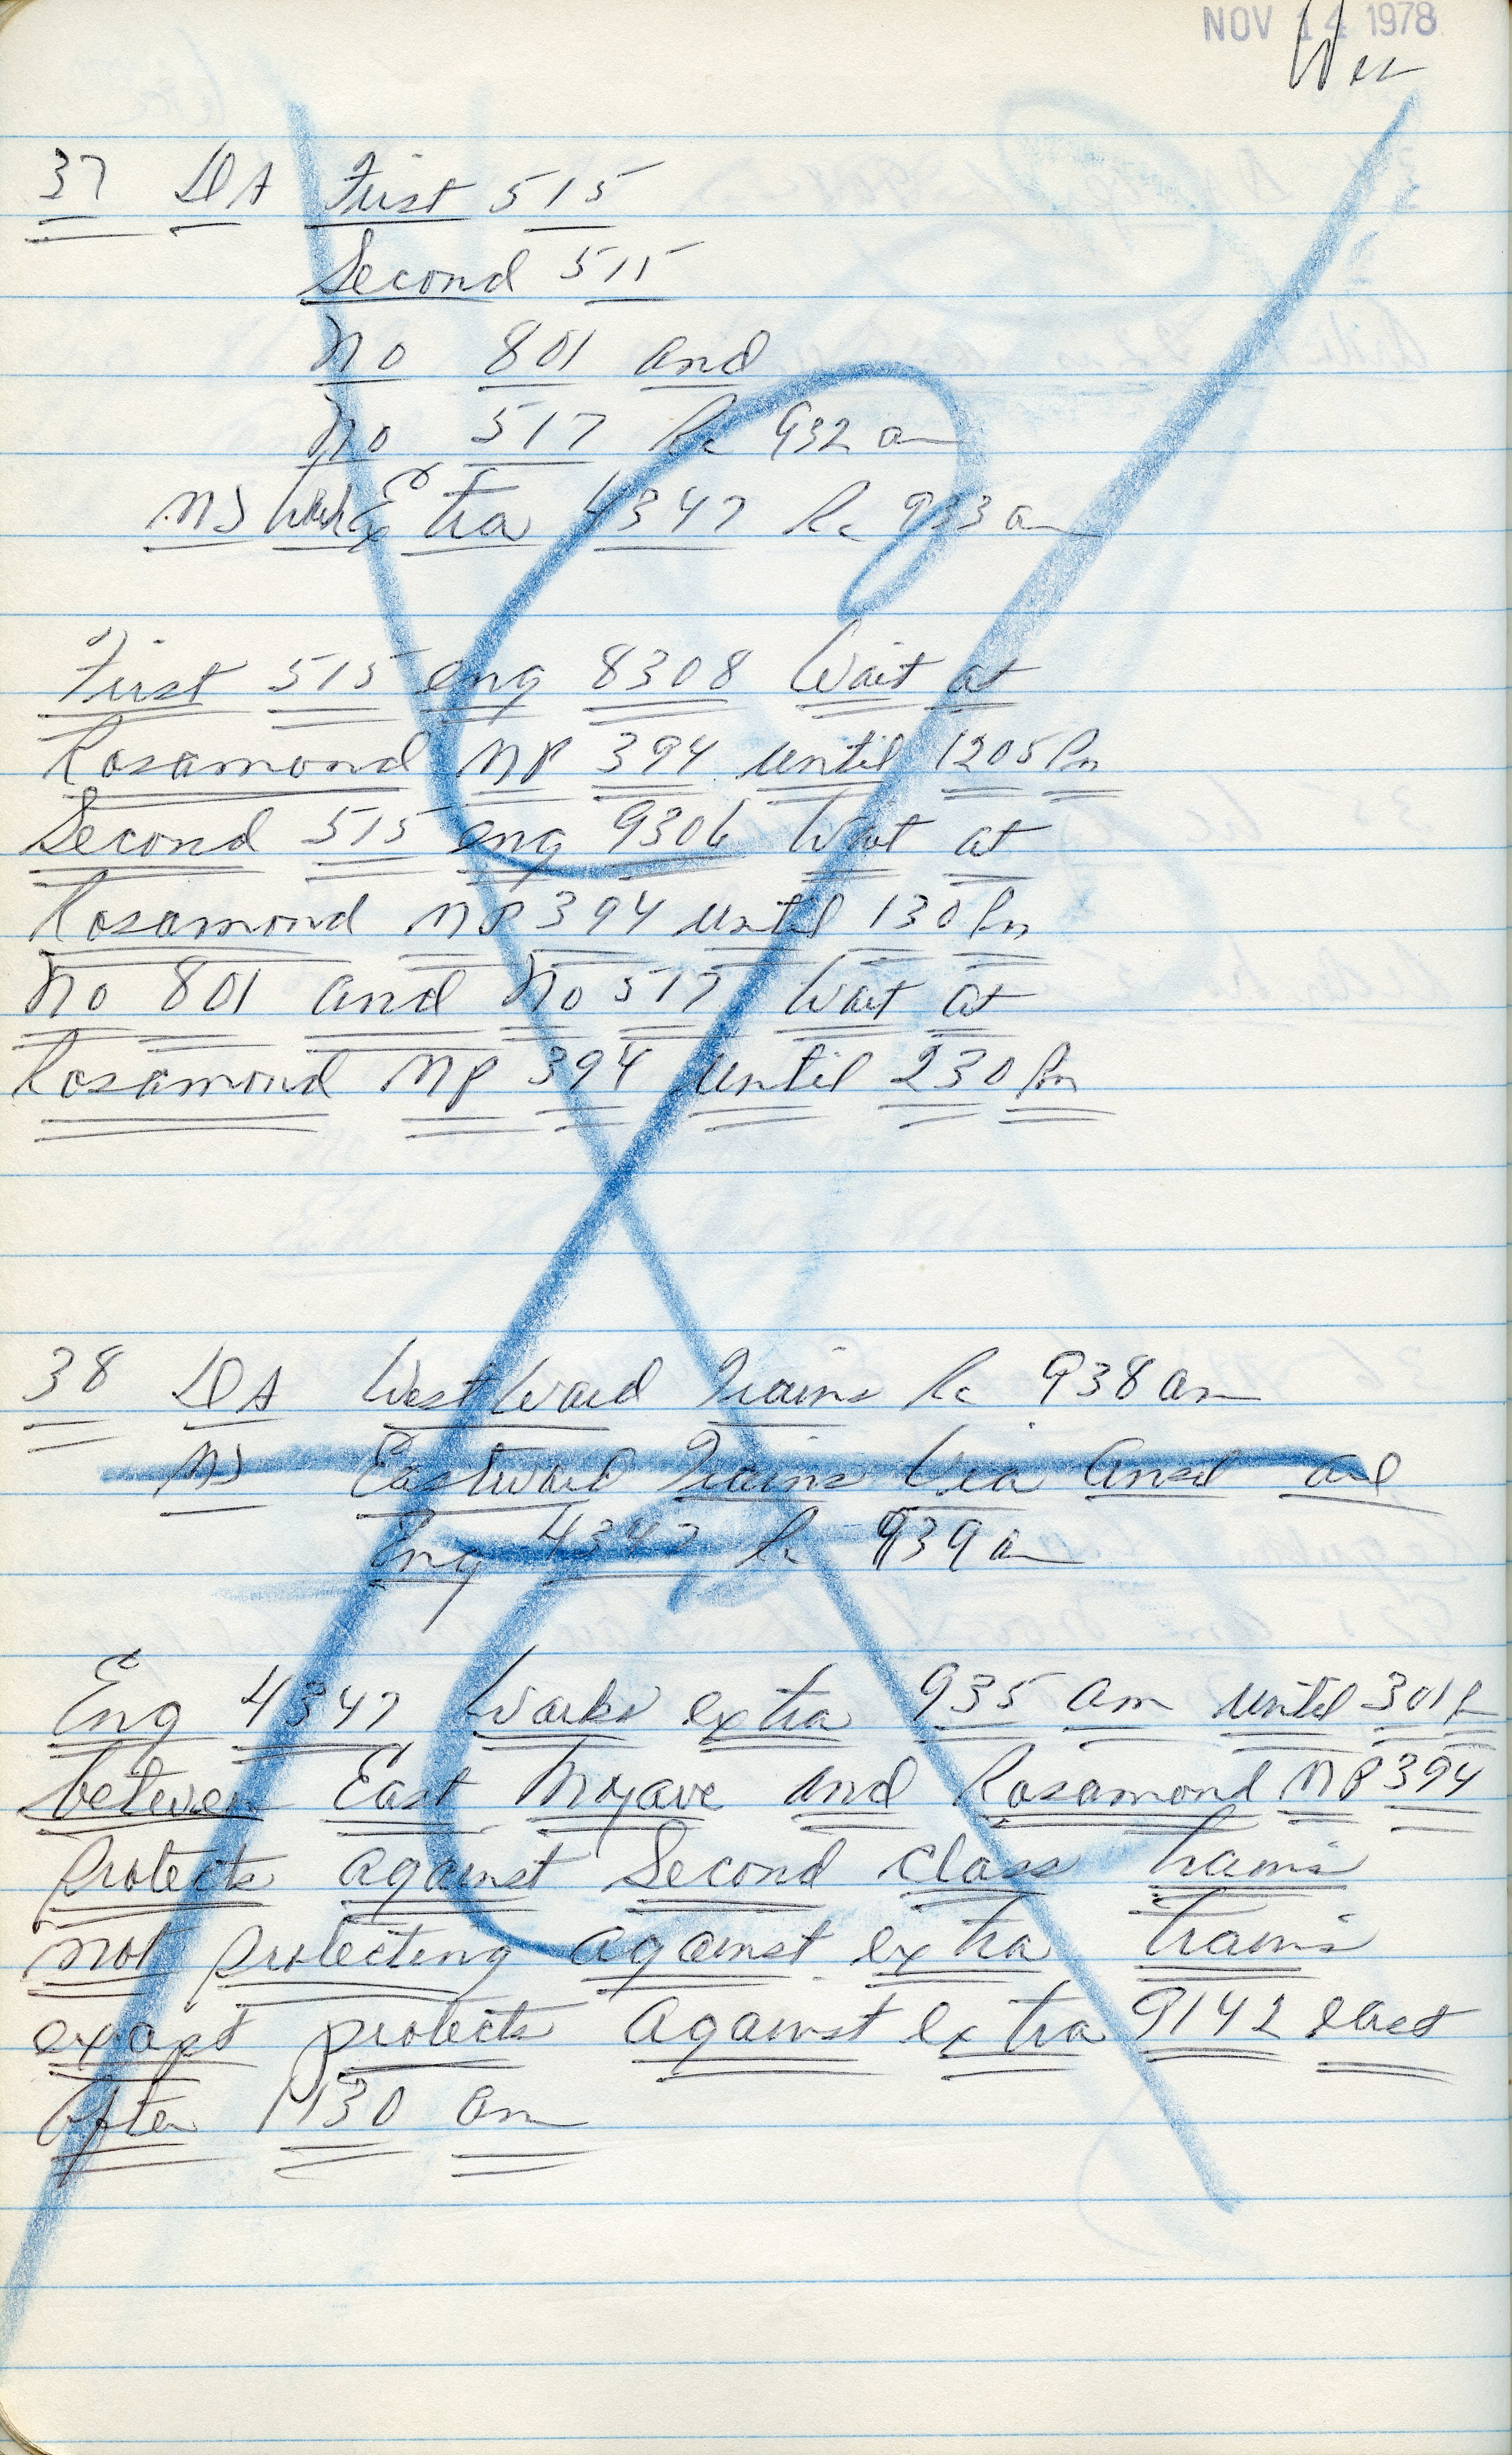 NOV 14 1978
37 DA First 515
Second 515
No 801 and
No 517 Rc 932 am
MJ Wrk Extra 4347 Rc 933 am
First 515 eng 8308 Wait at
Rosamond MP 394 until 1205 Pm
Second 515 eng 9306 Wait at
Rosamond MP 394 until 130 Pm
No 801 and No 517 Wait at
Rosamond MP 394 until 230 Pm
38 DA West Ward Trains Rc 938 am
MJ Eastward Trains Via Ansel and
Eng 4347 Rc 939 am
Eng 4347 Works extra 935 am until 301 P
between East Mojave and Rosamond MP 394
Protects against Second class trains
not protecting against extra trains
except protects against extra 9142 east
after 1130 am